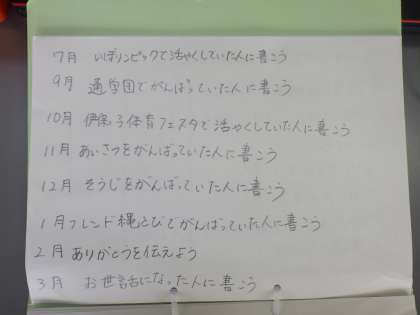 7月 いぼリンピックで活やくしていた人に書こう
9月 通学団でがんばっていた人に書こう
10月 伊保子体育フェスタで活やくしていた人に書こう
11月 あいさつをがんばっていた人に書こう
12月 そうじをがんばっていた人に書こう
1月 フレンド縄とびでがんばっていた人に書こう
2月 ありがとうを伝えよう
3月 お世話になった人に書こう